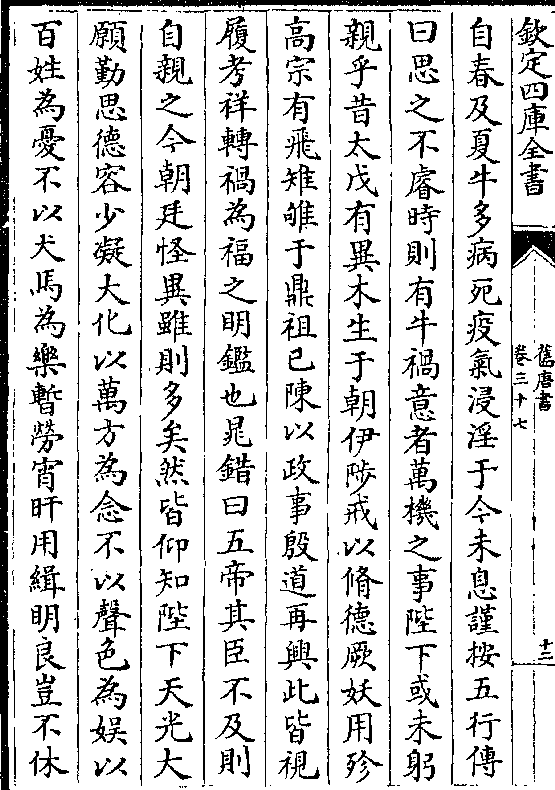 欽定四庫全書
舊唐書
卷三十七
十二
自春及夏牛多病死疫氣浸淫于今未息謹按五行傳
曰思之不睿時則有牛禍意者萬機之事陛下或未躬
親乎昔太戊有異木生于朝伊陟戒以脩德厥妖用殄
高宗有飛雉雊于鼎祖已陳以政事殷道再興此皆視
履考祥轉禍為福之明鑑也晁錯曰五帝其臣不及則
自親之今朝廷怪異雖則多矣然皆仰知陛下天光大
願勤思德容少凝大化以萬方為念不以聲色為娱以
百姓為憂不以犬馬為樂暫勞宵旰用緝明良豈不休